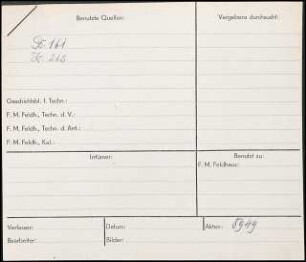 Benutzte Quellen:
Vergebens durchsucht:
161
Geschichtsbl. f. Techn.:
F. M. Feldh., Techn. d. V.:
F. M. Feldh., Techn. d. Ant.:
F. M. Feldh., Kal.:
Irrtümer:
Benutzt zu:
F. M. Feldhaus:
Verfasser:
Datum:
Akten: 8949
Bearbeiter:
Bilder: